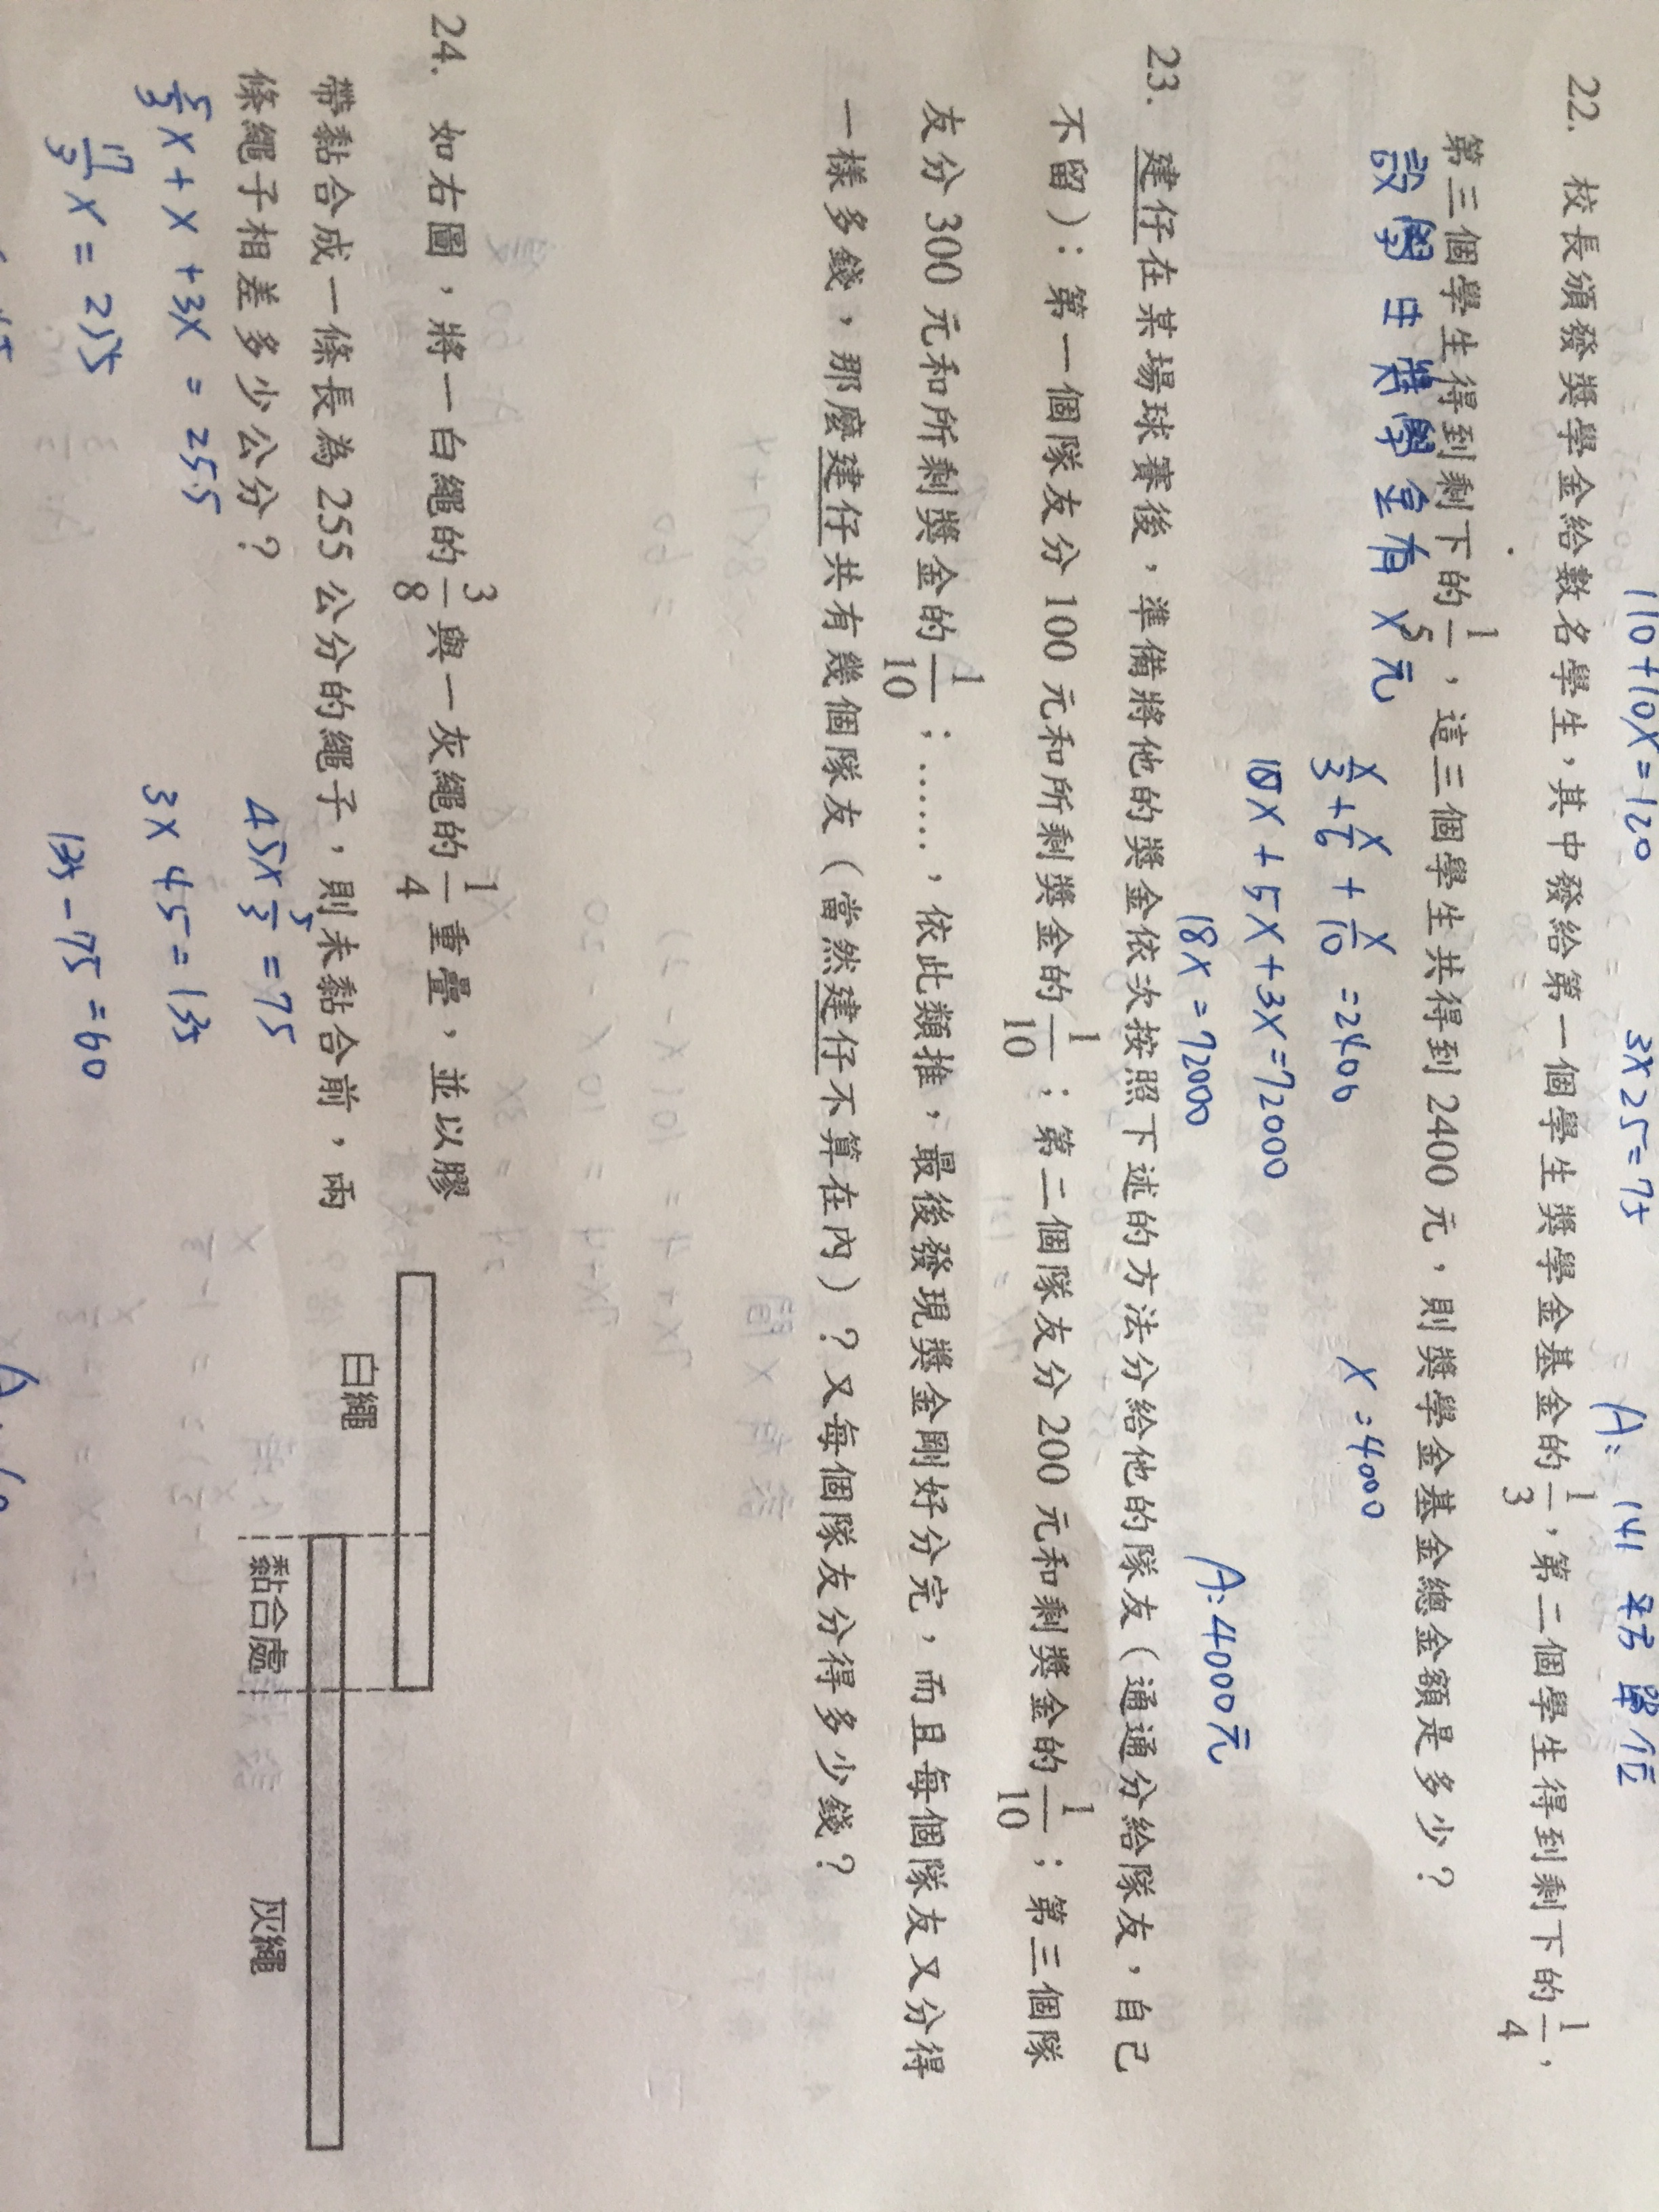 110+10X=120
3×25=75
A: 141 平方單位
22. 校長頒發獎學金給數名學生，其中發給第一個學生獎學金基金的1/3，第二個學生得到剩下的1/4，
第三個學生得到剩下的1/5，這三個學生共得到 2400 元，則獎學金基金總金額是多少？
X元
X/3+X/6+X/10=2400
X=4000
10X+5X+3X=72000
18X=72000
A:4000元
23. 建仔在某場球賽後，準備將他的獎金依次按照下述的方法分給他的隊友（通通分給隊友，自己
不留）：第一個隊友分 100 元和所剩獎金的1/10；第二個隊友分 200 元和剩獎金的1/10；第三個隊
友分 300 元和所剩獎金的1/10；……，依此類推，最後發現獎金剛好分完，而且每個隊友又分得
一樣多錢，那麼建仔共有幾個隊友（當然建仔不算在內）？又每個隊友分得多少錢？
24. 如右圖，將一白繩的3/8與一灰繩的1/4重疊，並以膠
帶黏合成一條長為 255 公分的繩子，則未黏合前，兩
條繩子相差多少公分？
白繩
黏合處
灰繩
5/3X+X+3X=255
17/3X=255
45×5/3=75
3×45=135
135-75=60